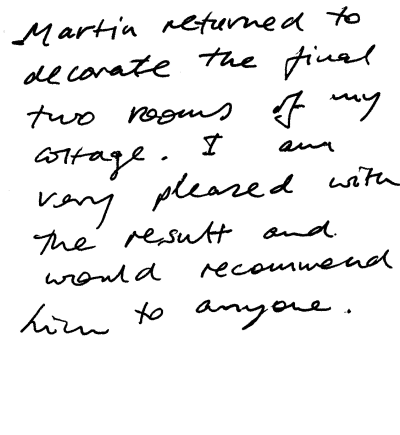 Martin returned to
decorate the final
two rooms of my
cottage. I am
very pleased with
the result and
would recommend
him to anyone.